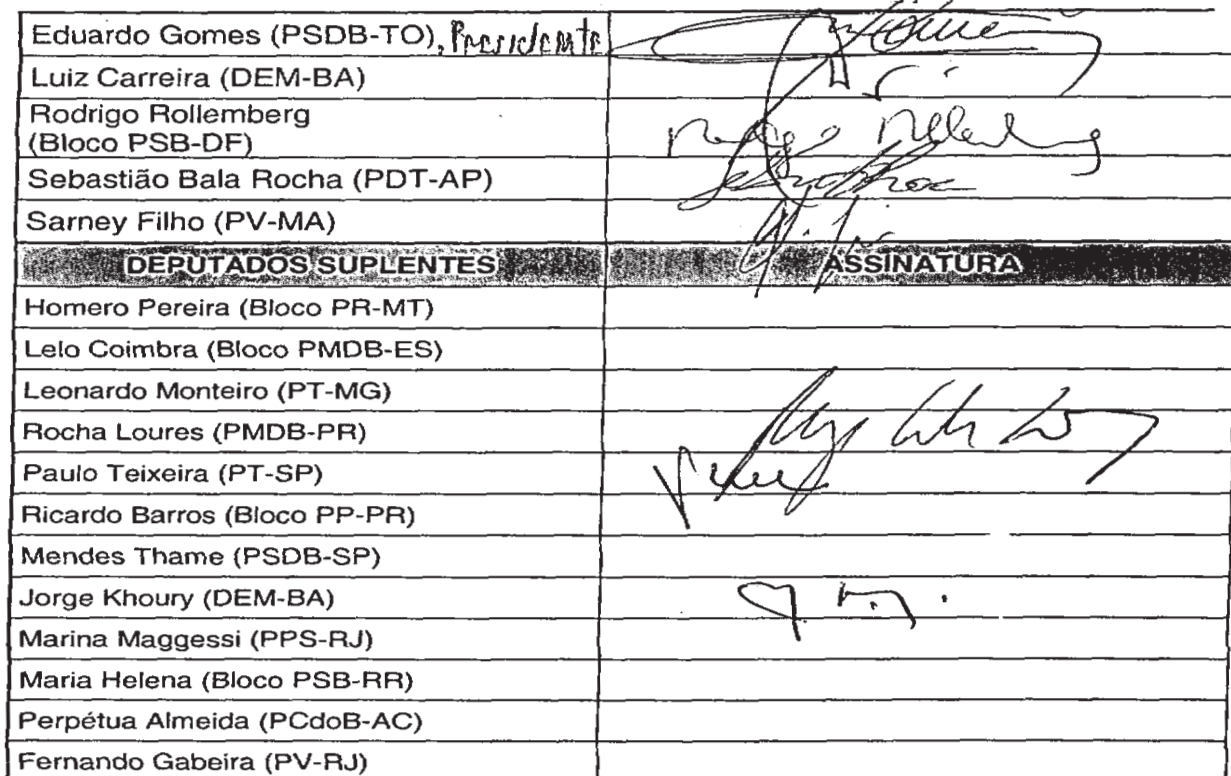 Eduardo Gomes (PSDB-TO), Presidente
Luiz Carreira (DEM-BA)
Rodrigo Rollemberg
(Bloco PSB-DF)
Sebastião Bala Rocha (PDT-AP)
Sarney Filho (PV-MA)
DEPUTADOS SUPLENTES ASSINATURA
Homero Pereira (Bloco PR-MT)
Lelo Coimbra (Bloco PMDB-ES)
Leonardo Monteiro (PT-MG)
Rocha Loures (PMDB-PR)
Paulo Teixeira (PT-SP)
Ricardo Barros (Bloco PP-PR)
Mendes Thame (PSDB-SP)
Jorge Khoury (DEM-BA)
Marina Maggessi (PPS-RJ)
Maria Helena (Bloco PSB-RR)
Perpétua Almeida (PCdoB-AC)
Fernando Gabeira (PV-RJ)